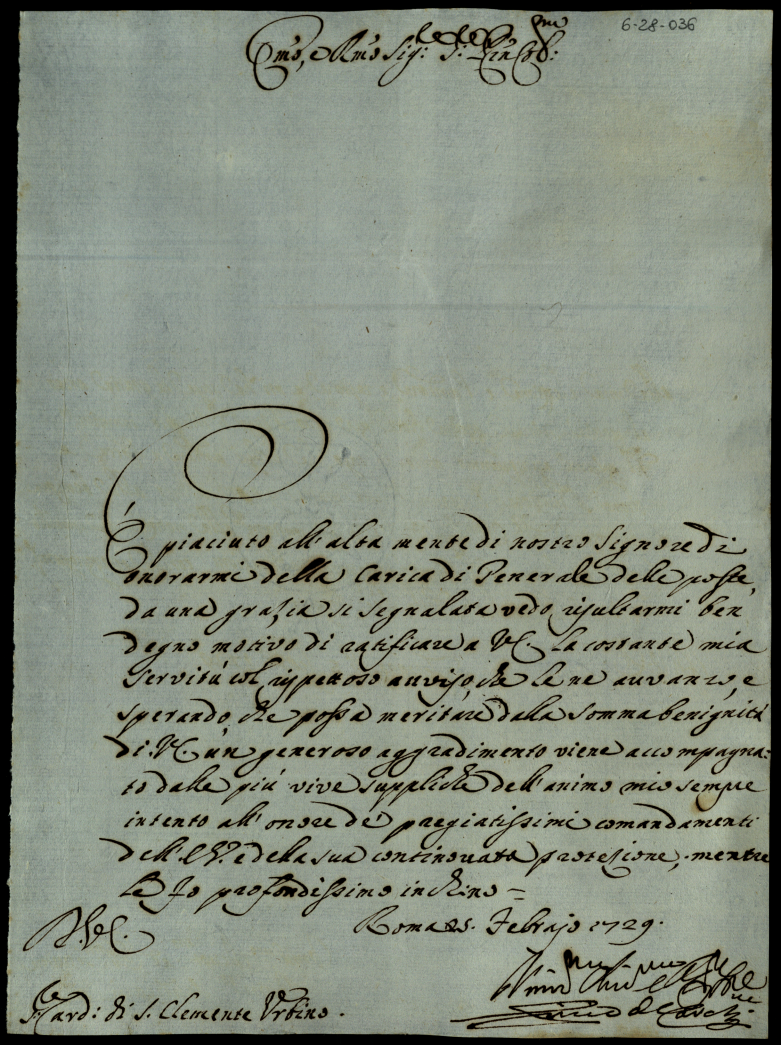 6-28-036
Em̃o, e Rm̃o Sig:re S:re
È piaciuto all' alta mente di nostro Signore di
onorarmi della Carica di Generale delle poste,
da una grazia si segnalata vedo risultarmi ben
degno motivo di ratificare a V.E. la costante mia
Servitù col rispettoso avviso che le ne avvanzo, e
sperando, che possa meritare dalla somma benignità
di V.E. un generoso aggradimento viene accompagna=
to dalle più vive suppliche dell' animo mio sempre
intento all' onore de' pregiatissimi comandamenti
dell' E.V. e della sua continovata protezione, mentre
le fo profondissimo inchino =
Roma 25. Febrajo 1729.
Card: di S. Clemente Urbino.